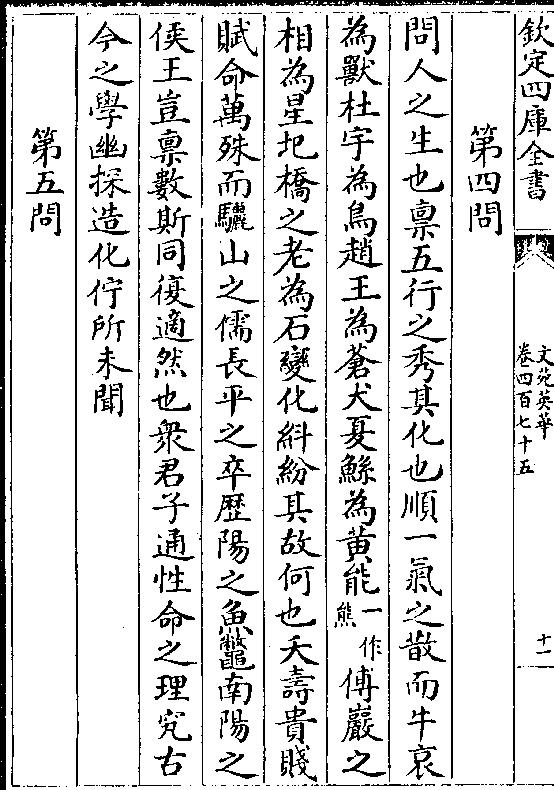 欽定四庫全書
文苑英華
卷四百七十五
十一
第四問
問人之生也禀五行之秀其化也順一氣之散而牛哀
為獸杜宇為鳥趙王為蒼犬夏鯀為黄能一作熊傅巖之
相為星圯橋之老為石變化糾紛其故何也夭壽貴賤
賦命萬殊而驪山之儒長平之卒歷陽之魚鼈南陽之
侯王豈禀數斯同復適然也衆君子通性命之理究古
今之學幽探造化佇所未聞
第五問